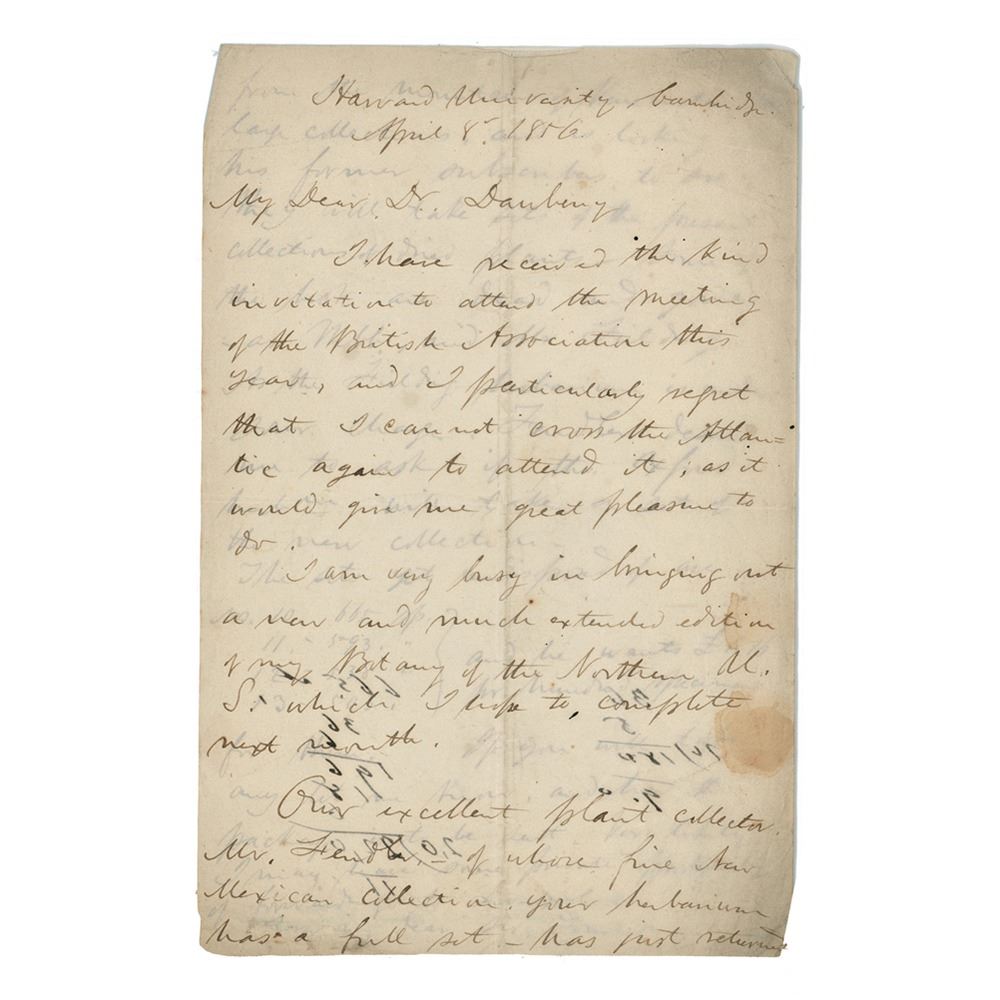 Harvard University Cambridge.
April 8th. 1856.
My Dear Dr. Daubeny
I have received the kind
invitation to attend the meeting
of the British Association this
year, and I particularly regret
that I cannot cross the Atlan=
tic again to attend it; as it
would give me great pleasure to
do.
I am very busy in bringing out
a new and much extended edition
of my Botany of the Northern U.
S. which I hope to complete
next month.
Our excellent plant collector.
Mr. Fendler – of whose fine New
Mexican collection your herbarium
has a full set – has just returned